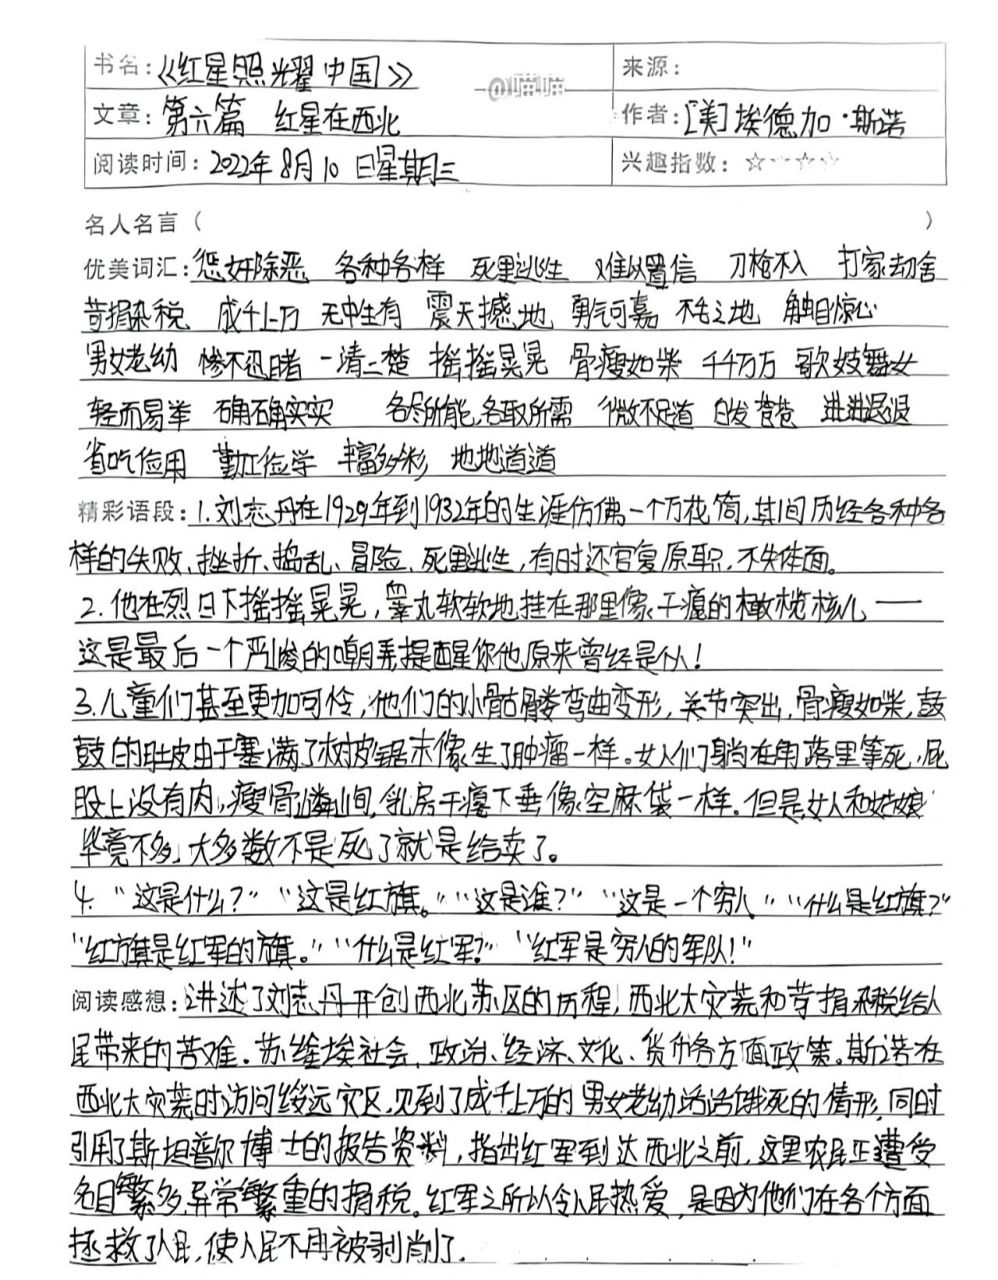 书名:《红星照耀中国》 @喵喵 来源:
文章:第六篇 红星在西北 作者:[美]埃德加·斯诺
阅读时间:2022年8月10日星期三 兴趣指数:☆☆☆☆
名人名言( )
优美词汇:惩奸除恶 各种各样 死里逃生 难以置信 刀枪不入 打家劫舍
苛捐杂税 成千上万 无中生有 震天撼地 勇气可嘉 不毛之地 触目惊心
男女老幼 惨不忍睹 一清二楚 摇摇晃晃 骨瘦如柴 千千万万 歌妓舞女
轻而易举 确确实实 各尽所能,各取所需 微不足道 白发苍苍 进进退退
省吃俭用 勤工俭学 丰富多彩 地地道道
精彩语段:1.刘志丹在1929年到1932年的生涯仿佛一个万花筒,其间历经各种各
样的失败、挫折、捣乱、冒险、死里逃生,有时还官复原职,不失体面。
2.他在烈日下摇摇晃晃,睾丸软软地挂在那里像干瘪的橄榄核儿——
这是最后一个严峻的嘲弄提醒你他原来曾经是个人!
3.儿童们甚至更加可怜,他们的小骷髅弯曲变形,关节突出,骨瘦如柴,鼓
鼓的肚皮由于塞满了树皮锯末像生了肿瘤一样。女人们躺在角落里等死,屁
股上没有肉,瘦骨嶙峋,乳房干瘪下垂像空麻袋一样。但是,女人和姑娘
毕竟不多,大多数不是死了就是给卖了。
4.“这是什么?”“这是红旗。”“这是谁?”“这是一个穷人”“什么是红旗?”
“红旗是红军的旗。”“什么是红军?”“红军是穷人的军队!”
阅读感想:讲述了刘志丹开创西北苏区的历程,西北大灾荒和苛捐杂税给人
民带来的苦难.苏维埃社会、政治、经济、文化、货币各方面政策。斯诺在
西北大灾荒时访问绥远灾区,见到了成千上万的男女老幼活活饿死的情形,同时
引用了斯坦普尔博士的报告资料,指出红军到达西北之前,这里农民正遭受
名目繁多,异常繁重的捐税。红军之所以令人民热爱,是因为他们在各个方面
拯救了人民,使人民不再被剥削了.